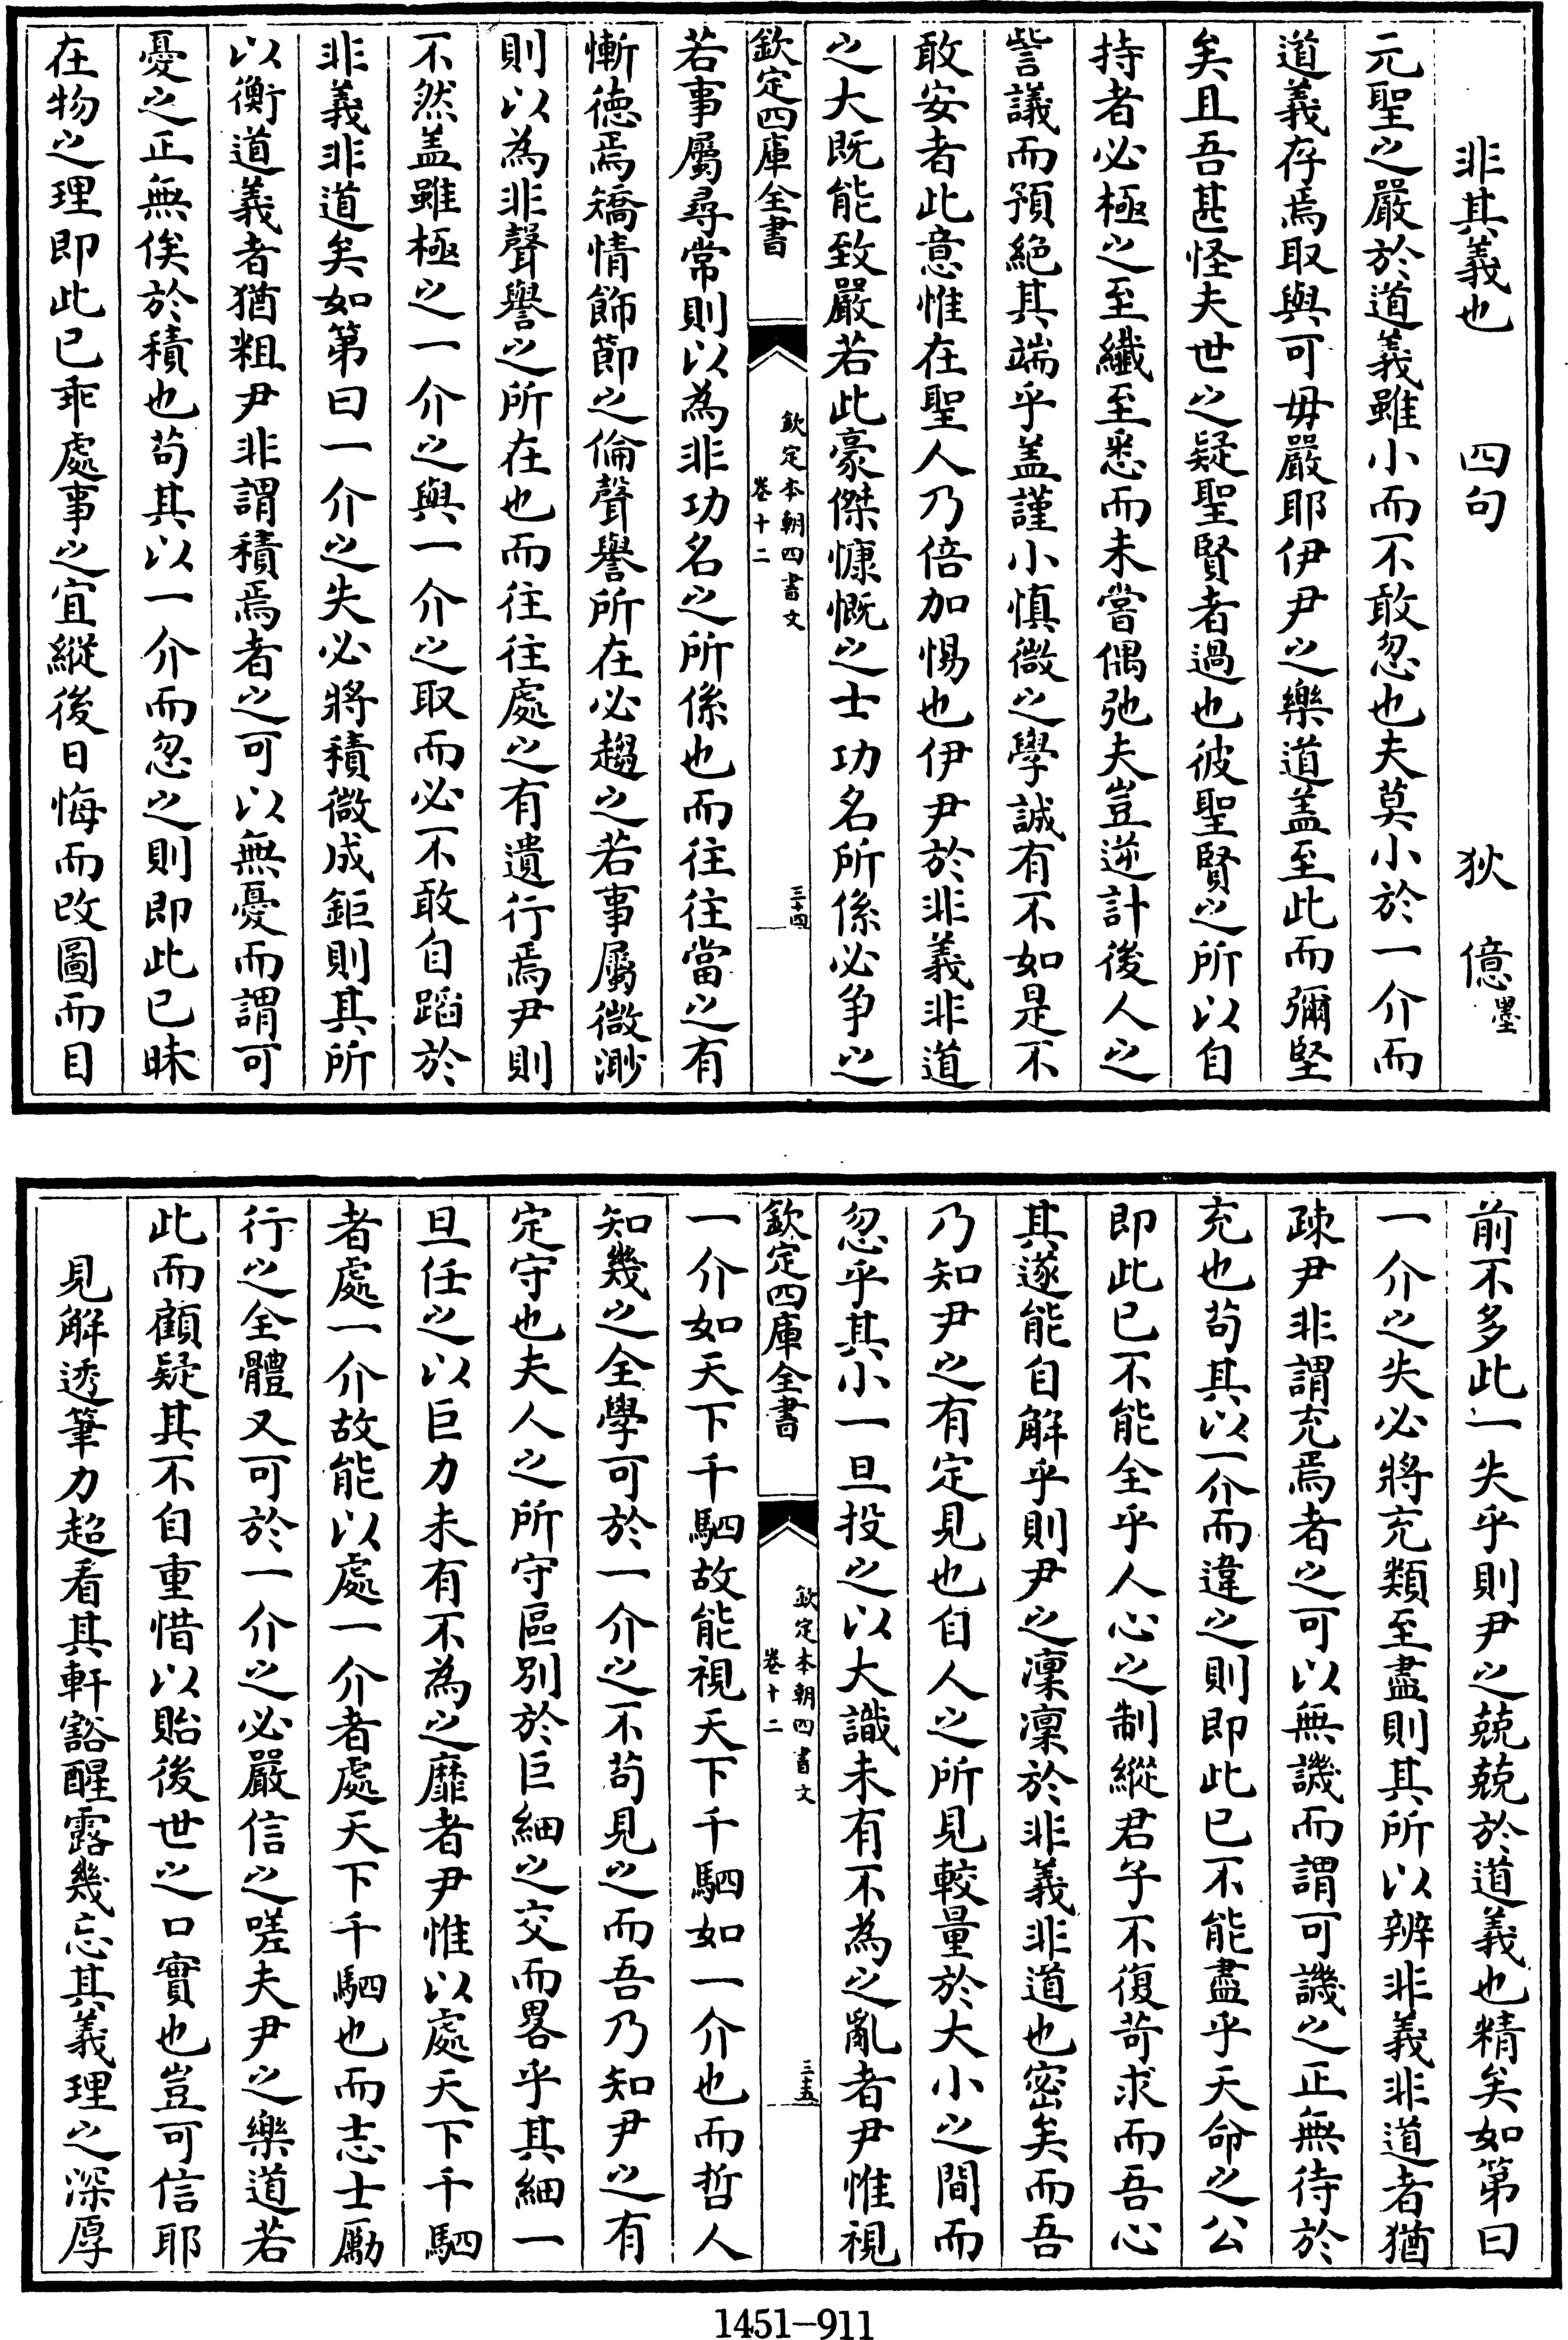 非其義也　四句　狄億墨
元聖之嚴於道義雖小而不敢忽也夫莫小於一介而
道義存焉取與可毋嚴耶伊尹之樂道盖至此而彌堅
矣且吾甚怪夫世之疑聖賢者過也彼聖賢之所以自
持者必極之至纎至悉而未嘗偶弛夫豈逆計後人之
訾議而預絶其端乎盖謹小慎微之學誠有不如是不
敢安者此意惟在聖人乃倍加惕也伊尹於非義非道
之大既能致嚴若此豪傑慷慨之士功名所係必争之
欽定四庫全書
欽定本朝四書文
卷十二
三十四
若事屬尋常則以為非功名之所係也而往往當之有
慚德焉矯情飾節之倫聲譽所在必趨之若事屬微渺
則以為非聲譽之所在也而往往處之有遺行焉尹則
不然盖雖極之一介之與一介之取而必不敢自蹈於
非義非道矣如第曰一介之失必將積微成鉅則其所
以衡道義者猶粗尹非謂積焉者之可以無憂而謂可
憂之正無俟於積也茍其以一介而忽之則即此已昧
在物之理即此已乖處事之宜縱後日悔而改圖而目
前不多此一失乎則尹之兢兢於道義也精矣如第曰
一介之失必將充類至盡則其所以辨非義非道者猶
疎尹非謂充焉者之可以無譏而謂可譏之正無待於
充也茍其以一介而違之則即此已不能盡乎天命之公
即此已不能全乎人心之制縱君子不復苛求而吾心
其遂能自解乎則尹之凜凜於非義非道也密矣而吾
乃知尹之有定見也自人之所見較量於大小之間而
忽乎其小一旦投之以大識未有不為之亂者尹惟視
欽定四庫全書
欽定本朝四書文
卷十二
三十五
一介如天下千駟故能視天下千駟如一介也而哲人
知幾之全學可於一介之不茍見之而吾乃知尹之有
定守也夫人之所守區别於巨細之交而畧乎其細一
旦任之以巨力未有不為之靡者尹惟以處天下千駟
者處一介故能以處一介者處天下千駟也而志士勵
行之全體又可於一介之必嚴信之嗟夫尹之樂道若
此而顧疑其不自重惜以貽後世之口實也豈可信耶
見解透筆力超看其軒豁醒露幾忘其義理之深厚
1451-911